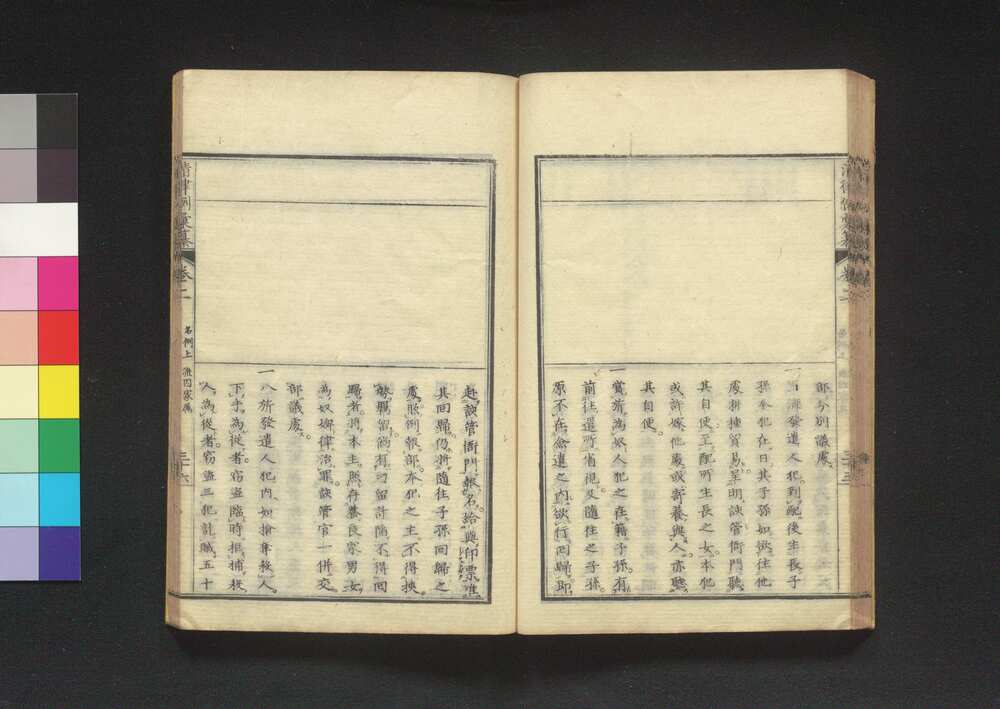 部分別議處。
一口外發遣人犯。到配後生長子
孫。本犯在日。其子孫如欲往他
處耕種貿易。呈明該管衙門。聽
其自便。至配所生長之女。本犯
或許嫁他處。或寄養與人。亦聽
其自便。
一實發為奴人犯之在籍子孫。有
前往遣所省視。及隨往之子孫
原不在僉遣之內。欲行回歸。即
赴該管衙門報名。給與印票。准
其回歸。仍將隨往子孫回歸之
處。照例報部。本犯之主。不得挾
勢羈留。倘有刁留計陷。不得回
歸者。將本主照存養良家男女
為奴婢律治罪。該管官一併交
部議處。
一八所發遣人犯內。如搶奪殺人。
下手為從者。竊盜臨時拒捕殺
人。為從者。竊盜三犯計贓五十
清律例彙纂
卷二
名例上
流囚家屬
三十六